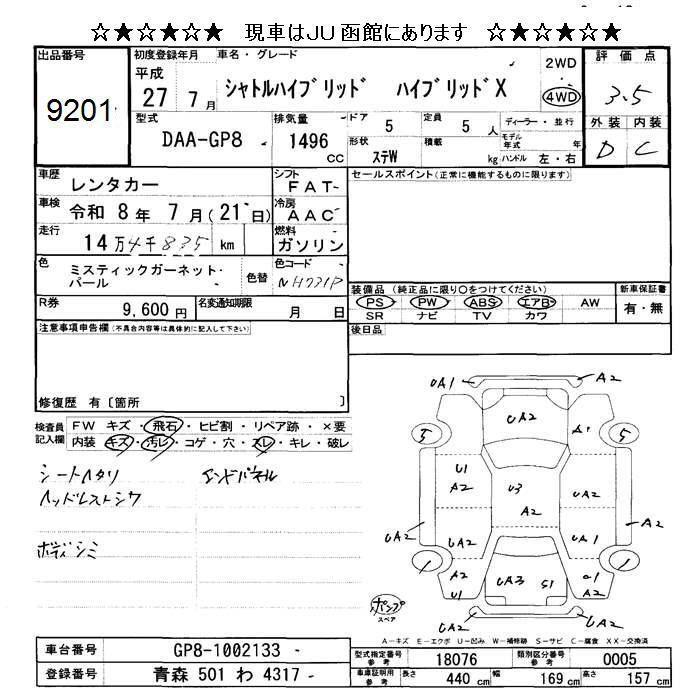 ☆★☆★☆★☆ 現車はJU函館にあります ☆★☆★☆★☆
出品番号
9201
初度登録年月
平成
27 7 月
車名・グレード
シャトルハイブリッド ハイブリッドX
2WD
4WD
評価点
3.5
外装 内装
D C
型式
DAA-GP8
排気量
1496
CC
ドア
5
定員
5 人
形状
ステW
積載
kg
ディーラー・並行
モデル年式 年
ハンドル 左・右
車歴
レンタカー
シフト
FAT
車検
令和 8 年 7 月 (21 日)
冷房
AAC
走行
14万4千835 km
燃料
ガソリン
色
ミスティックガーネット・
パール
色替
色コード
NH731P
R券
9,600 円
名変通知期限
月 日
セールスポイント(正常に機能するものに限ります)
装備品(純正品に限り○をつけてください)
PS PW ABS エアB AW
SR ナビ TV カワ
新車保証書
有・無
後日品
注意事項申告欄(不具合内容等は具体的に記入して下さい)
修復歴 有〔箇所 〕
検査員
記入欄
FW キズ・飛石・ヒビ割・リペア跡・×要
内装 キズ・汚レ・コゲ・穴・スレ・キレ・破レ
シートヘタリ エンドパネル
ヘッドレストシワ
ボディシミ
UA1 A2
UA2 A1
5 5
U1
A2 U3 A2 UA2
UA2 UA2 UA1 UA2
1 1
A2
U1 UA3 S1 A2
UA2 UA2
パンプ
スペア
A-キズ E-エクボ U-凹み W-補修跡 S-サビ C-腐食 XX-交換済
車台番号
GP8-1002133
登録番号
青森 501 わ 4317
型式指定番号
参考
18076
類別区分番号
参考
0005
車庫証明用
参考
長さ
440 cm
幅
169 cm
高さ
157 cm